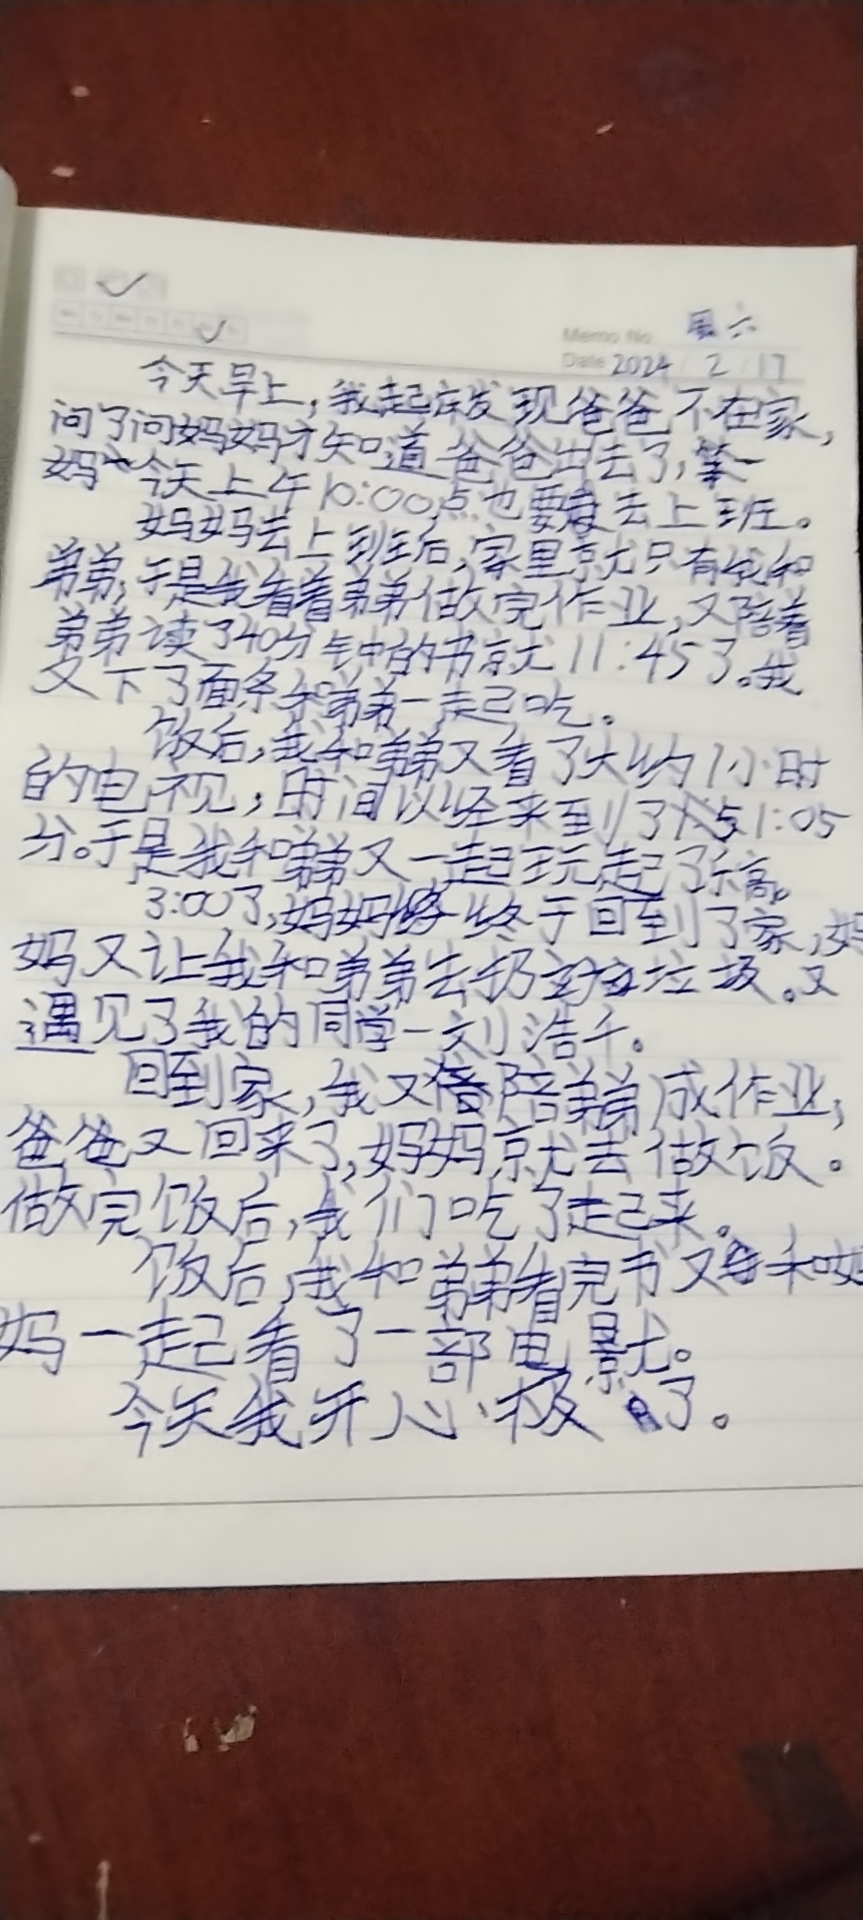 周六
Memo No.
Date 2024 / 2 / 17
今天早上,我起床发现爸爸不在家,
问了问妈妈才知道爸爸出去了,
妈今天上午10:00点也要去上班。
妈妈去上班后,家里就只有我和
弟弟,于是我看着弟弟做完作业,又陪着
弟弟读了40分钟的书就11:45了。我
又下了面条和弟弟一起吃。
饭后,我和弟弟又看了大约1小时
的电视,时间以经来到了1:05
分。于是我和弟弟又一起玩起了乐高。
3:00了,妈妈终于回到了家,妈
妈又让我和弟弟去扔垃圾。又
遇见了我的同学—刘浩千。
回到家,我又陪弟弟成作业,
爸爸又回来了,妈妈就去做饭。
做完饭后,我们吃了起来。
饭后,我和弟弟看完书又和妈
妈一起看了一部电影。
今天我开心极了。